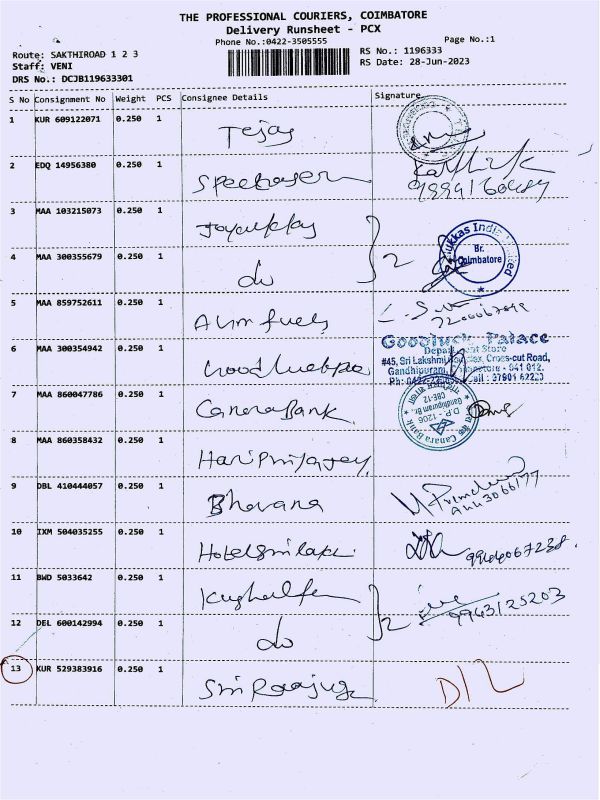 THE PROFESSIONAL COURIERS, COIMBATORE
Delivery Runsheet - PCX
Phone No.:0422-3505555
Page No.:1
Route: SAKTHIROAD 1 2 3
RS No.: 1196333
Staff: VENI
RS Date: 28-Jun-2023
DRS No.: DCJB119633301
S No Consignment No Weight PCS Consignee Details Signature
1 KUR 609122071 0.250 1 Tejas
2 EDQ 14956380 0.250 1
3 MAA 103215073 0.250 1
4 MAA 300355679 0.250 1 do 2
Br.
Coimbatore
5 MAA 859752611 0.250 1 Alim fuels
6 MAA 300354942 0.250 1
Goodluck Palace
Department Store
#45, Sri Lakshmi Cross-cut Road,
Gandhipuram, 641 012.
7 MAA 860047786 0.250 1 Canara Bank
D.P - 1206
Canara Bank
Gandhipuram Br.
CBE-12
8 MAA 860358432 0.250 1
9 DBL 410444057 0.250 1 Bhavana
10 IXM 504035255 0.250 1
11 BWD 5033642 0.250 1
9943125203
12 DEL 600142994 0.250 1 do 2
13 KUR 529383916 0.250 1 D/L